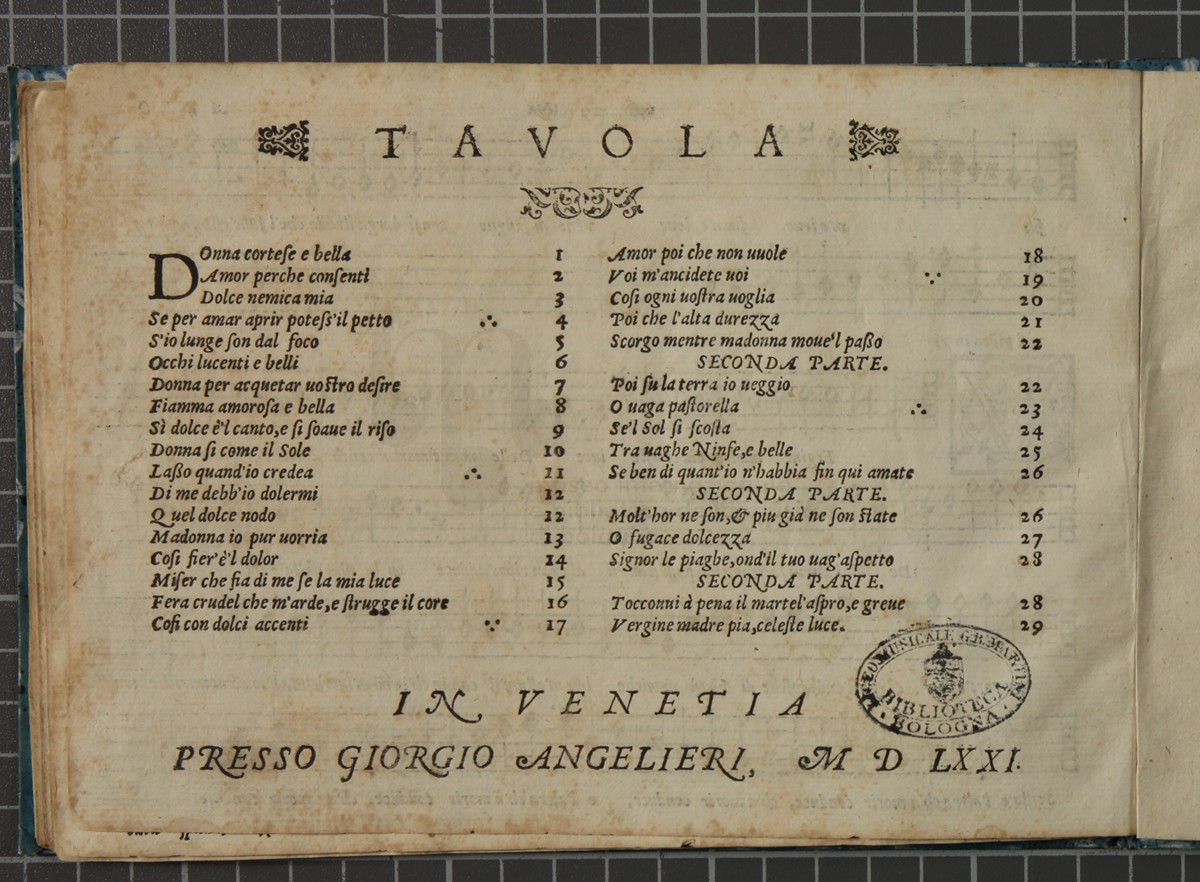 TAVOLA
Donna cortese e bella 1
Amor perche consenti 2
Dolce nemica mia 3
Se per amar aprir potess'il petto ∴ 4
S'io lunge son dal foco 5
Occhi lucenti e belli 6
Donna per acquetar uostro desire 7
Fiamma amorosa e bella 8
Sì dolce è'l canto, e si soaue il riso 9
Donna si come il Sole 10
Lasso quand'io credea ∴ 11
Di me debb'io dolermi 12
Quel dolce nodo 12
Madonna io pur uorria 13
Cosi fier'è'l dolor 14
Miser che fia di me se la mia luce 15
Fera crudel che m'arde, e strugge il core 16
Cosi con dolci accenti ∵ 17
Amor poi che non uuole 18
Voi m'ancidete uoi ∵ 19
Cosi ogni uostra uoglia 20
Poi che l'alta durezza 21
Scorgo mentre madonna moue'l passo 22
SECONDA PARTE.
Poi su la terra io ueggio 22
O uaga pastorella ∴ 23
Se'l Sol si scosta 24
Tra uaghe Ninfe, e belle 25
Se ben di quant'io n'habbia fin qui amate 26
SECONDA PARTE.
Molt'hor ne son, & piu già ne son state 26
O fugace dolcezza 27
Signor le piaghe, ond'il tuo uag'aspetto 28
SECONDA PARTE.
Toccoui à pena il martel'aspro, e greue 28
Vergine madre pia, celeste luce. 29
LICEO MUSICALE G.B. MARTINI
BIBLIOTECA
BOLOGNA
IN VENETIA
PRESSO GIORGIO ANGELIERI, M D LXXI.